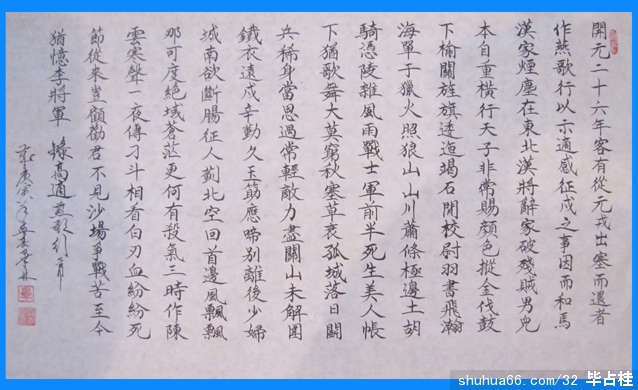 開元二十六年客有從元戎出塞而還者
作燕歌行以示適感征戍之事因而和焉
漢家煙塵在東北漢將辭家破殘賊男兒
本自重橫行天子非常賜顏色摐金伐鼓
下榆關旌旗逶迤碣石間校尉羽書飛瀚
海單于獵火照狼山山川蕭條極邊土胡
騎憑陵雜風雨戰士軍前半死生美人帳
下猶歌舞大莫窮秋塞草衰孤城落日鬭
兵稀身當恩遇常輕敵力盡關山未解圍
鐵衣遠戍辛勤久玉筯應啼別離後少婦
城南欲斷腸征人薊北空回首邊風飄飄
那可度絕域蒼茫更何有殺氣三時作陳
雲寒聲一夜傳刁斗相看白刃血紛紛死
節從來豈顧勳君不見沙場爭戰苦至今
猶憶李將軍 錄高適燕歌行一首
shuhua66.com/32 毕占桂